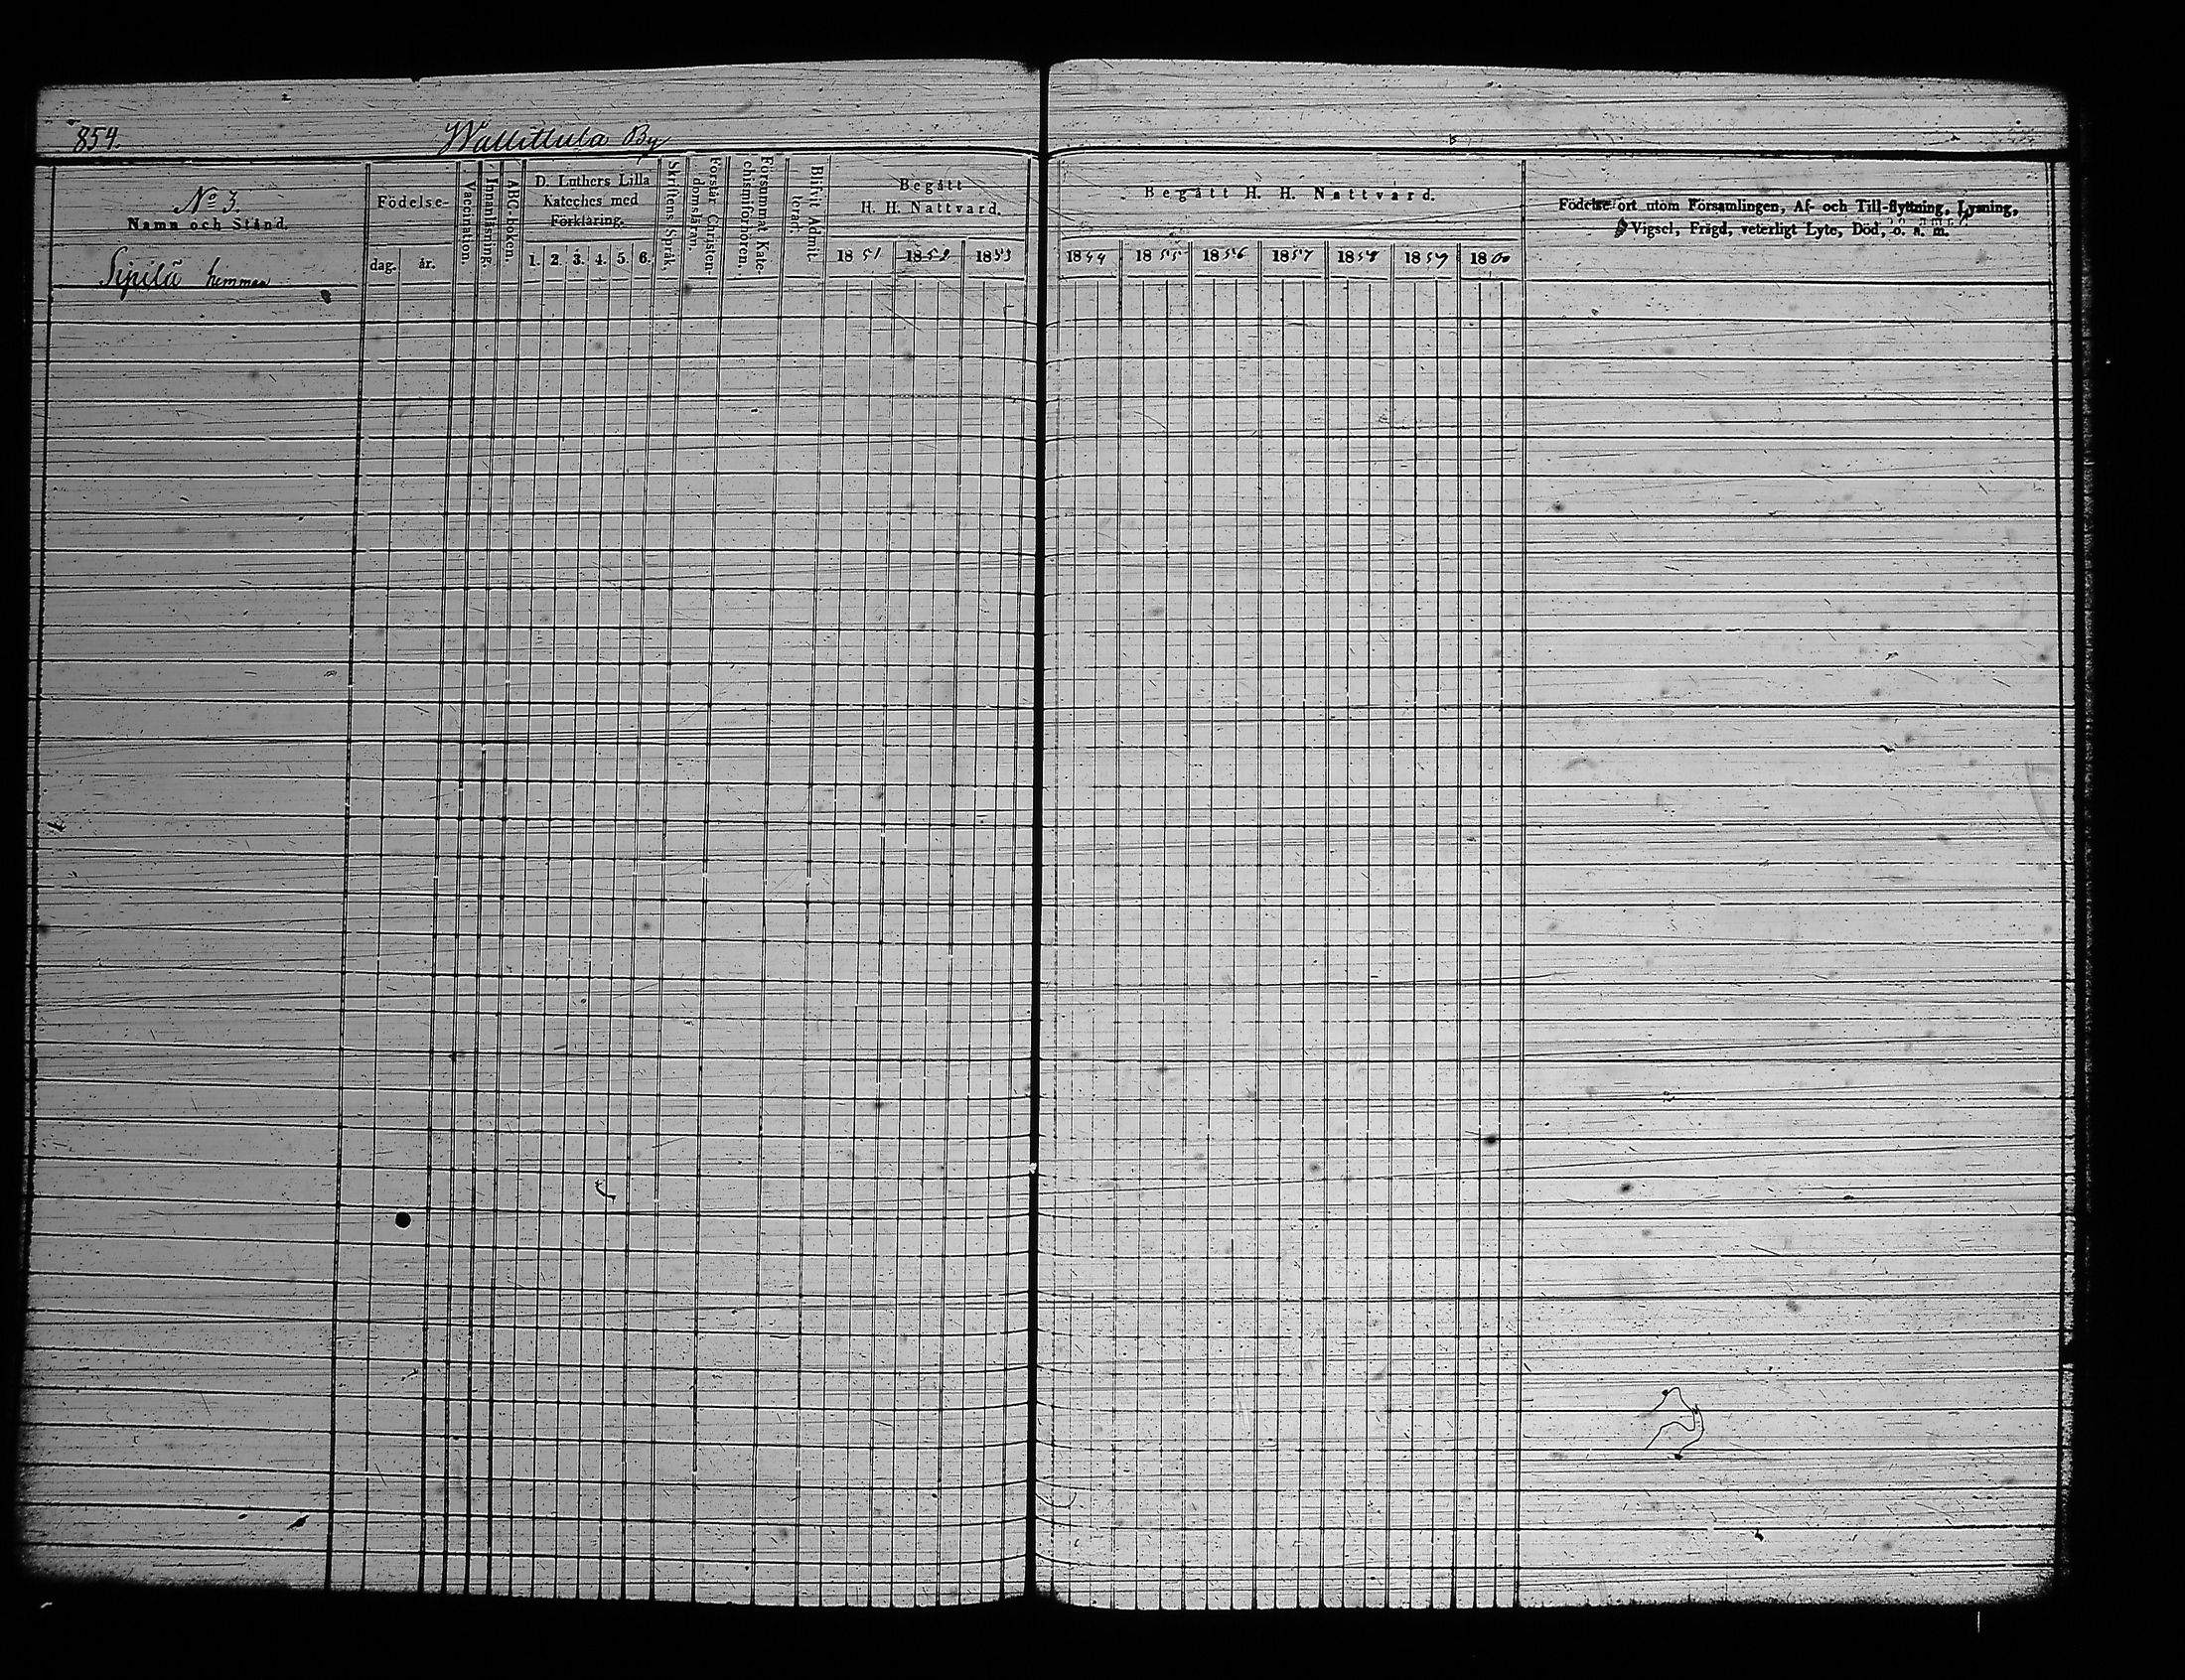 854.
Wallittula By
No 3.
Namn och Stånd.
Sipilä hemman
Födelse-
dag. år.
Vaccination.
Innanläsning.
ABC-boken.
D. Luthers Lilla
Kateches med
Förklaring.
1. 2. 3. 4. 5. 6.
Skriftens Språk.
Förstår Christen-
domsläran.
Försummat Kate-
chismiförhören.
Blifvit Admit-
terad.
Begått
H. H. Nattvard.
1851 1852 1853
Begått H. H. Nattvard.
1854 1855 1856 1857 1858 1859 1860
Födelse-ort utom Församlingen, Af- och Till-flyttning, Lysning,
Vigsel, Frägd, veterligt Lyte, Död, o. a. m.